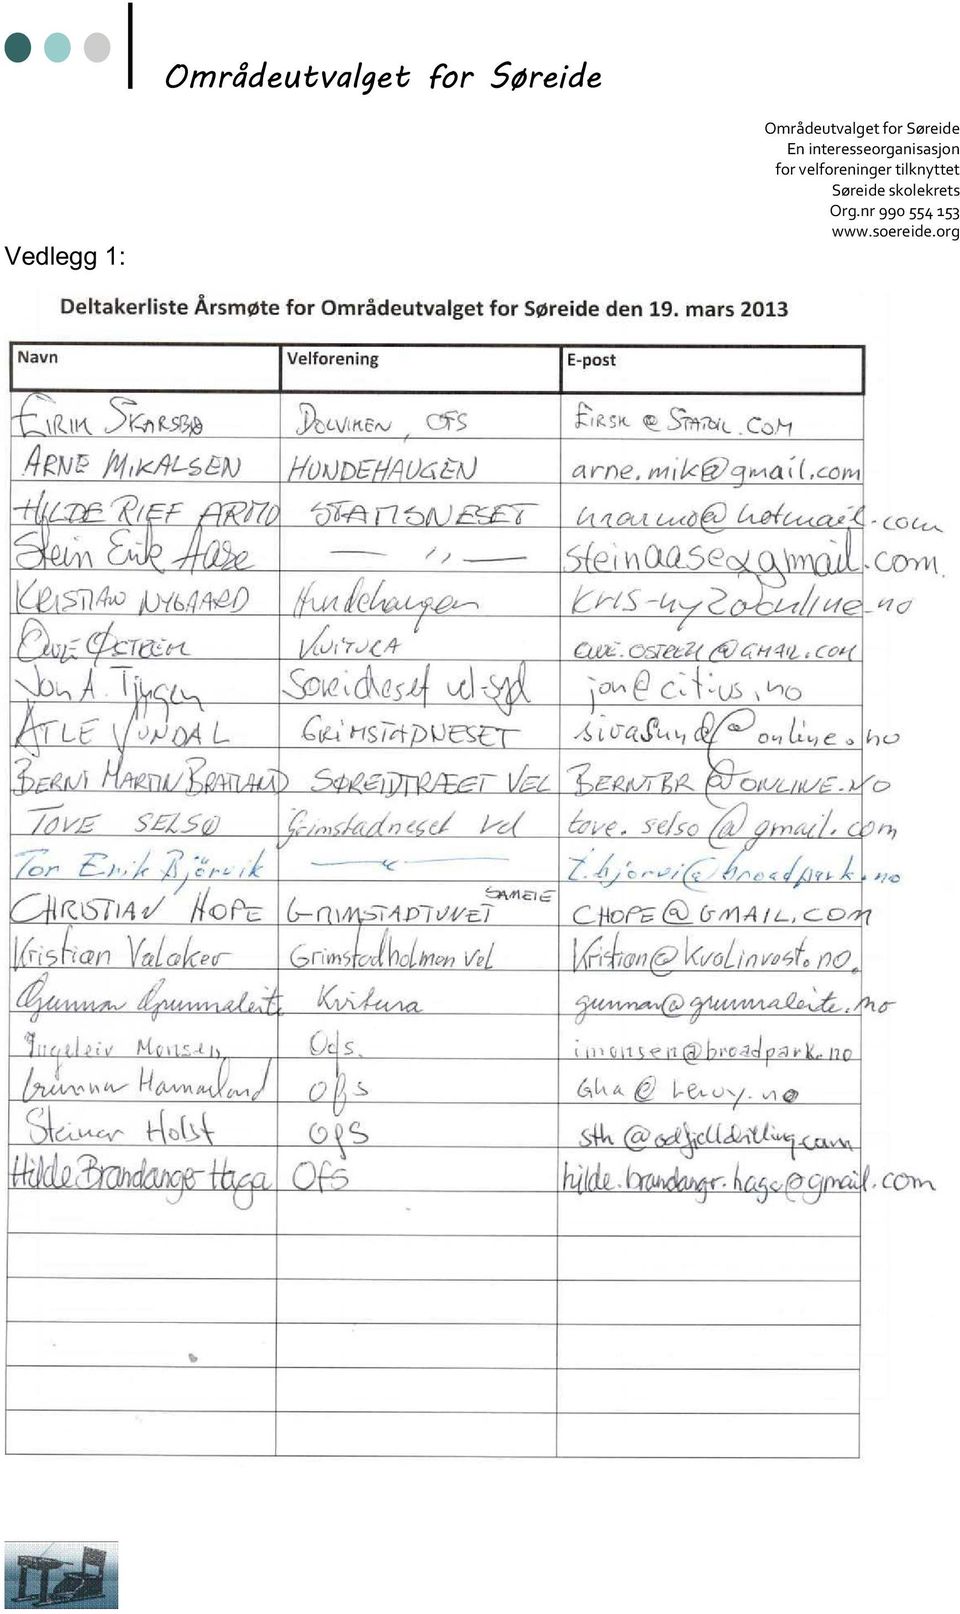 Områdeutvalget for Søreide
Områdeutvalget for Søreide
En interesseorganisasjon
for velforeninger tilknyttet
Søreide skolekrets
Org.nr 990 554 153
www.soereide.org
Vedlegg 1:
Deltakerliste Årsmøte for Områdeutvalget for Søreide den 19. mars 2013
Navn Velforening E-post
EIRIK SKARSBØ DOLVIKEN, OFS EIRSK @ STATOIL.COM
ARNE MIKALSEN HUNDEHAUGEN arne.mik@gmail.com
HILDE RIEF ARMO STAMSNESET hrarmo@hotmail.com
Stein Erik Aase — 〃 — steinaase@gmail.com
KRISTIAN NYGAARD Hundehaugen kris-ny2@online.no
OVE ØSTREM KVITURA OVE.OSTREM@GMAIL.COM
Jon A. Soreideset vel-syd jon@citius.no
ATLE VUNDAL GRIMSTADNESET sivasund@online.no
BERNT MARTIN BRATLAND SØREIDTRÆET VEL BERNTBR@ONLINE.NO
TOVE SELSØ Grimstadneset Vel tove.selso@gmail.com
Tor Erik Bjørvik — 〃 — t.bjorvi@broadpark.no
CHRISTIAN HOPE GRIMSTADTUNET SAMEIE CHOPE@GMAIL.COM
Kristian Valaker Grimstadholmen Vel Kristian@kvalinvest.no.
Gunnar Grunnaleite Kvitura gunnar@grunnaleite.no
Ingeleiv Monsen Ofs. imonsen@broadpark.no
Gunnar Hamarland Ofs Gha@Leroy.no
Steinar Holst OFS sth@odfjelldrilling.com
Hilde Brandanger Haga Ofs hilde.brandangr.haga@gmail.com